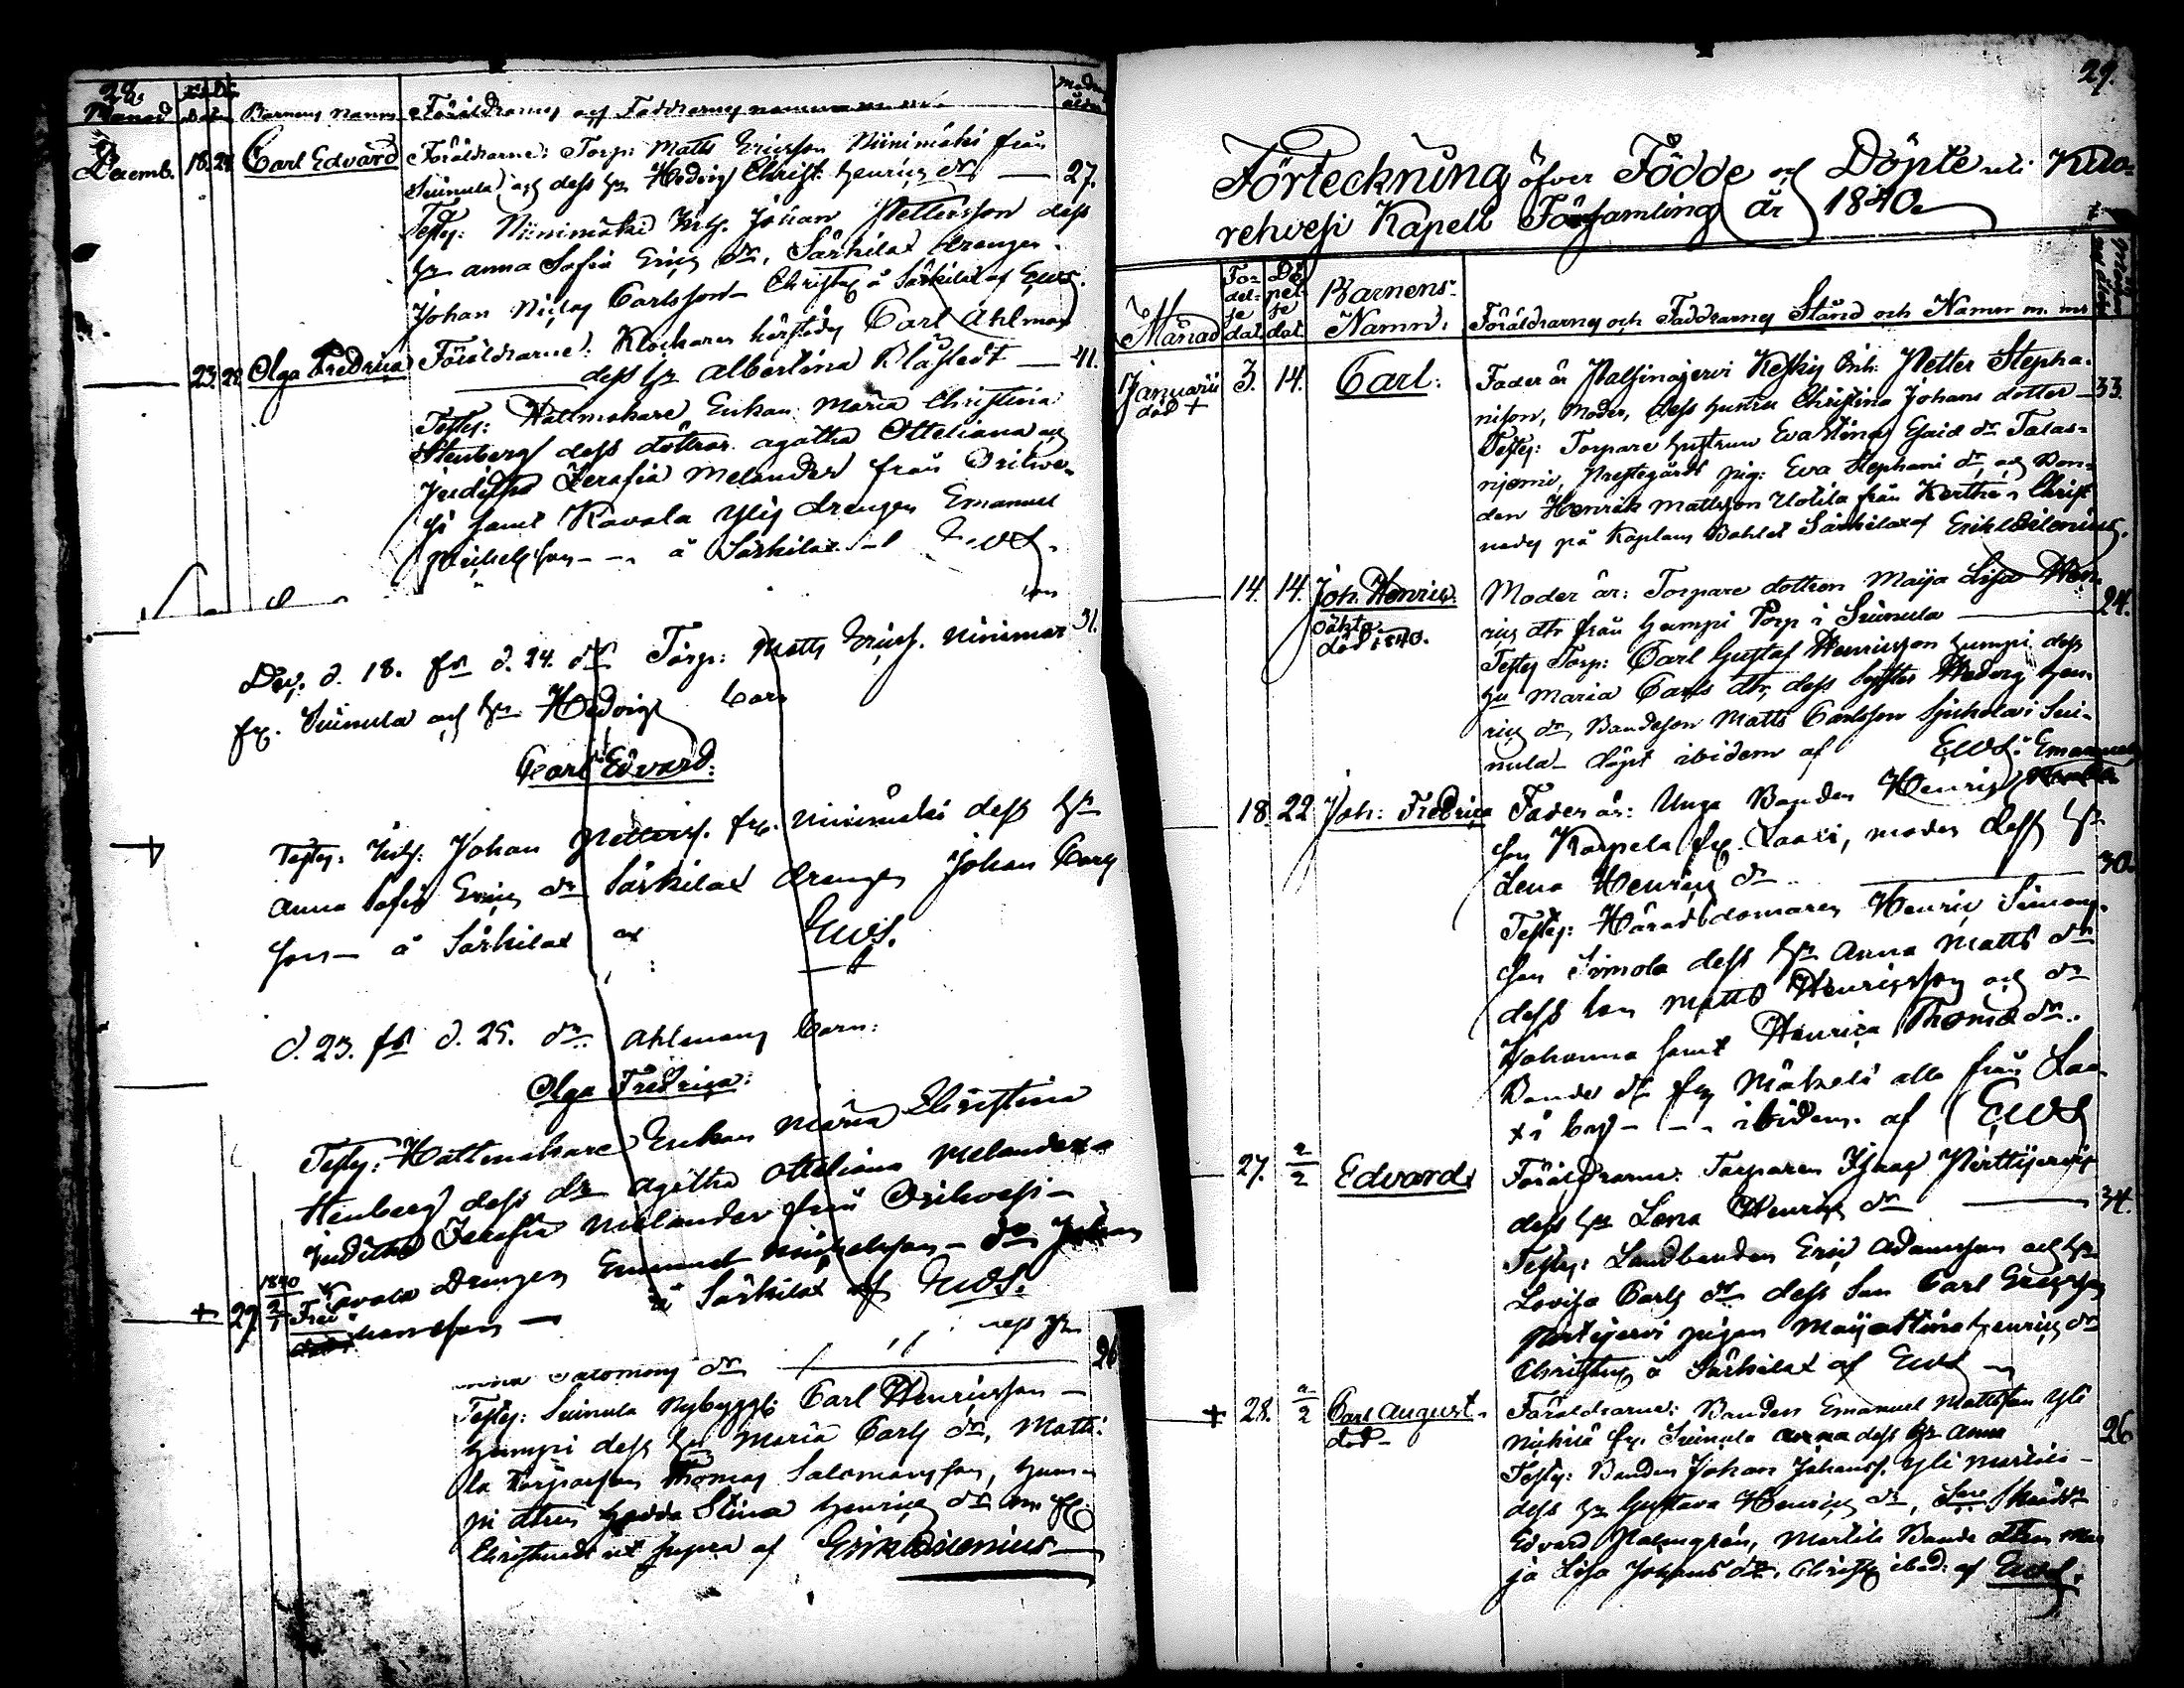 28.
Månad Barnens Namn Föräldrarnes och Faddrarnes namn
Decemb. 18. 24. Carl Edvard Föräldrarne: Torp: Matts Ericsson Niinimäki från
Suinula och dess h:u Hedvig Christ. Henrics dr — 27.
Testes: Niinimäki Inhs. Johan Pettersson dess
hu Anna Sofia Erics dr, Särkilax drängen
Johan Niclas Carlsson — Christnad å Särkilax af EWS.
23. Olga Fredrica Föräldrarne: Klockaren härstädes Carl Ahlman
dess hu Albertina Blåfieldt — 41.
Testes: Hattmakare Enkan Maria Christina
Stenberg dess döttrar Agatha Otteliana och
Juditha Serafia Melander från Orihve-
si samt Kavala Ylis drengen Emanuel
Michelsson — å Särkilax af EWS.
31.
Dec. d. 18. fr d. 24. dr Torp: Matts Erics. Niinimäk
fr. Suinula och hu Hedvig barn
Carl Edvard:
Testes: Inhs: Johan Petterss. fr. Niinimäki dess hu
Anna Sofia Erics dr Särkilax drengen Johan Carls
son — å Särkilax af EWS.
d. 23. fr d. 25. dr. Ahlmans barn:
Olga Fredrica:
Testes: Hattmakare Enkan Maria Christina
Stenberg dess dr Agatha Otteliana Melander
Juditha Serafia Melander från Orihvesi —
Kavala Drengen Emanuel Michelsson — dr Johan
1840
+ 29. 2/1 Fred å Särkilax af EWS.
hansson —
dess hu
Salomons dr — 26
Testes: Suinula Nybygg: Carl Henricsson —
Humpi dess hu Maria Carls dr, Matti-
la Torparson Thomas Salomonsson, Hum-
pi dtren Hedda Stina Henrics dr
Christnad ut supra af Erik W Silenius —
29.
Förteckning öfver Födde och Döpte uti Kuo-
rehvesi Kapell Församling år 1840.
Månad Fö-del-se dat. Dö-pel-se dat. Barnens Namn: Föräldrarnes och Faddrarnes Stånd och Namn m. m.
Januarii 3. 14. Carl: Fader är Palsinajervi Keskis Inh: Petter Stepha-
död + nison, Moder, dess hustru Christina Johans dotter — 33.
Testes: Torpare hustrun Eva Stina Esaid dr Talas-
niemi, Prestegårds pig: Eva Stephani dr och Bon-
den Henrik Mattsson Uotila från Kerttu. Christ-
nades på Kaplans Bohlet Särkilax af Erik W Silenius.
14. 14. Joh. Henric. Moder är: Torpare dottren Maija Lisa Hen-
oäkta rics dtr från Humpi Torp i Suinula — 24.
död 1840. Testes Torp: Carl Gustaf Henricsson Humpi dess
hu Maria Carls dtr, dess Syster Hedvig Hen-
rics dr, Bondeson Matts Carlsson Sjuhola i Sui-
nula — döpt ibidem af EWS.
18. 22 Joh: Fredrica Fader är: Unga Bonden Henric Emanuels
son Karpela fr. Laaxi, moder dess hu
Lena Henrics dr — 30.
Testes: Häradsdomaren Henric Simons-
son Simola dess hu Anna Matts dr
dess son Matts Henricsson och dr
Johanna samt Henrica Thomæ dr..
Bonde dr fr Mäkelä alla från Laa-
xi by — — ibidem af EWS
27. 2/2 Edvard Föräldrarne: Torparen Isaac Pirttijervi
dess hu Lena Henrics dr — 34.
Testes: Landbonden Eric Adamsson och hu
Lovisa Carls dr dess Son Carl Ericsson
Pirttijervi pigan Maija Stina Henrics dr
Christnad å Särkilax af EWS —
+ 28. 2/2 Carl August. Föräldrarne: Bonden Emanuel Mattsson Yli
död — Nickilä fr. Suinula dess hu Anna 26
Testes: Bonden Johan Johanss. Yli Markila —
dess hu Gustava Henrics dr,
Edvard Palmgrén, Markila Bonde dtren Ma-
ja Lisa Johans dr. Christn. ibid: af EWS.